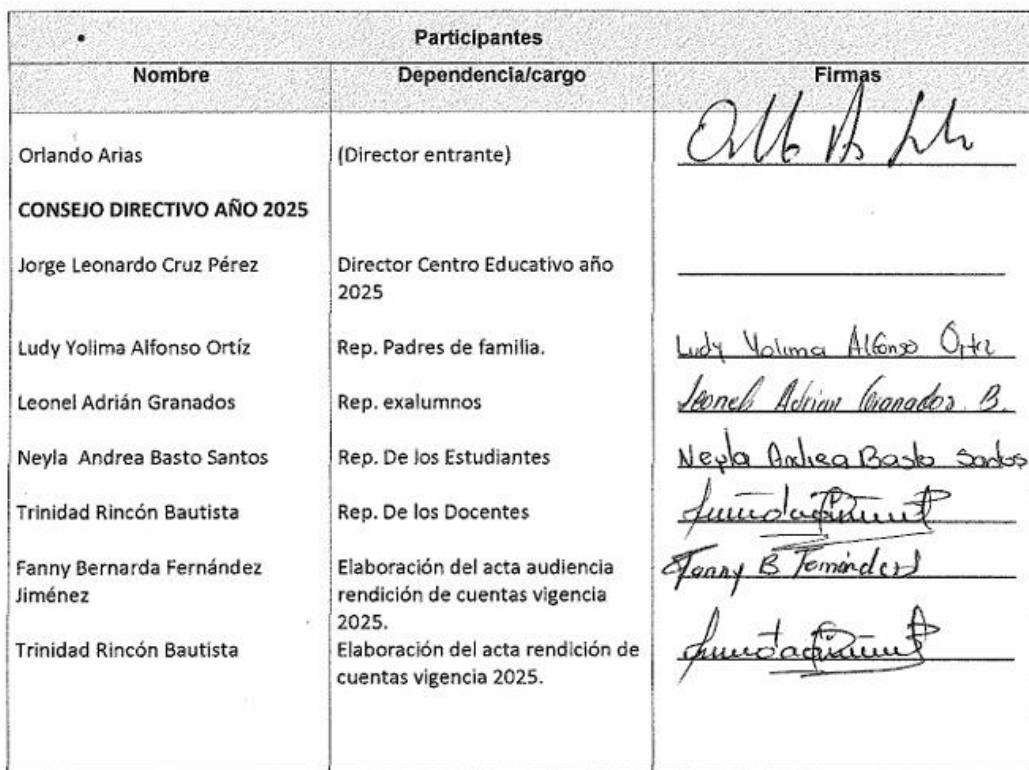 Participantes
Nombre Dependencia/cargo Firmas
Orlando Arias (Director entrante)
CONSEJO DIRECTIVO AÑO 2025
Jorge Leonardo Cruz Pérez Director Centro Educativo año
2025
Ludy Yolima Alfonso Ortíz Rep. Padres de familia. Ludy Yolima Alfonso Ortiz
Leonel Adrián Granados Rep. exalumnos Leonel Adrian Granados B.
Neyla Andrea Basto Santos Rep. De los Estudiantes Neyla Andrea Basto Santos
Trinidad Rincón Bautista Rep. De los Docentes
Fanny Bernarda Fernández Elaboración del acta audiencia Fanny B Fernández
Jiménez rendición de cuentas vigencia
2025.
Trinidad Rincón Bautista Elaboración del acta rendición de
cuentas vigencia 2025.